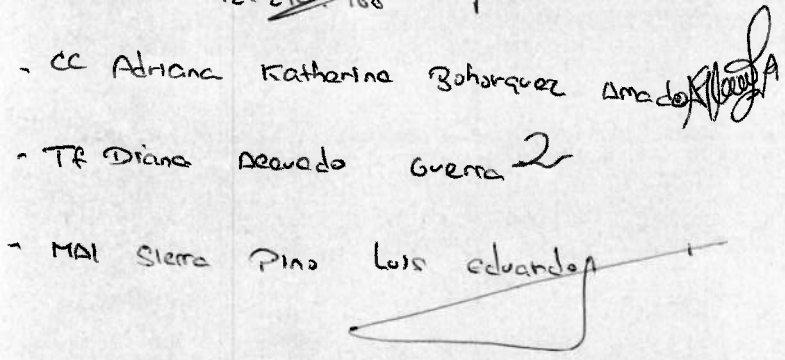 - CC Adriana Katherine Bohorquez Amado
- TF Diana Acevedo Guerra
- MA1 Sierra Pino Luis eduardo